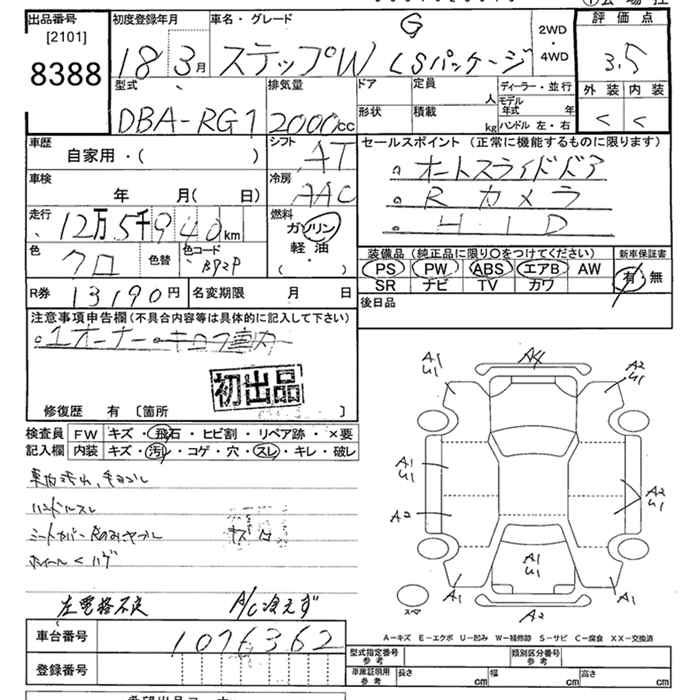 出品番号 初度登録年月 車名・グレード 評価点
[2101] G 2WD
8388 18 3月 ステップW LSパッケージ ・ 3.5
4WD
型式 排気量 ドア 定員 人 ディーラー・並行 外装 内装
DBA-RG1 2000cc 形状 積載 kg モデル年式 年 < <
ハンドル 左・右
車歴 シフト セールスポイント(正常に機能するものに限ります)
自家用・( ) AT オートスライドドア
車検 冷房 Rカメラ
年 月( 日) AAC HID
走行 燃料
12万5千940km ガソリン
色 色替 色コード 軽油 装備品(純正品に限り○をつけてください) 新車保証書
クロ B92P ( ・ ) PS PW ABS エアB AW 有 無
R券 13190円 名変期限 月 日 SR ナビ TV カワ
後日品
注意事項申告欄(不具合内容等は具体的に記入して下さい)
1オーナー
初出品
修復歴 有 [箇所 ]
検査員 FW キズ・飛石・ヒビ割・リペア跡・×要
記入欄 内装 キズ・汚レ・コゲ・穴・スレ・キレ・破レ
ハンドルスレ
左電格不良 A/C冷えず
車台番号 1076362
登録番号
A1 U1 A4 A2 U1
A1 U1 A2 U1
A2
A1 U1
A1 A1
スペア A2
A-キズ E-エクボ U-凹み W-補修跡 S-サビ C-腐食 XX-交換済
型式指定番号 参考 類別区分番号 参考
車庫証明用 参考 長さ cm 幅 cm 高さ cm